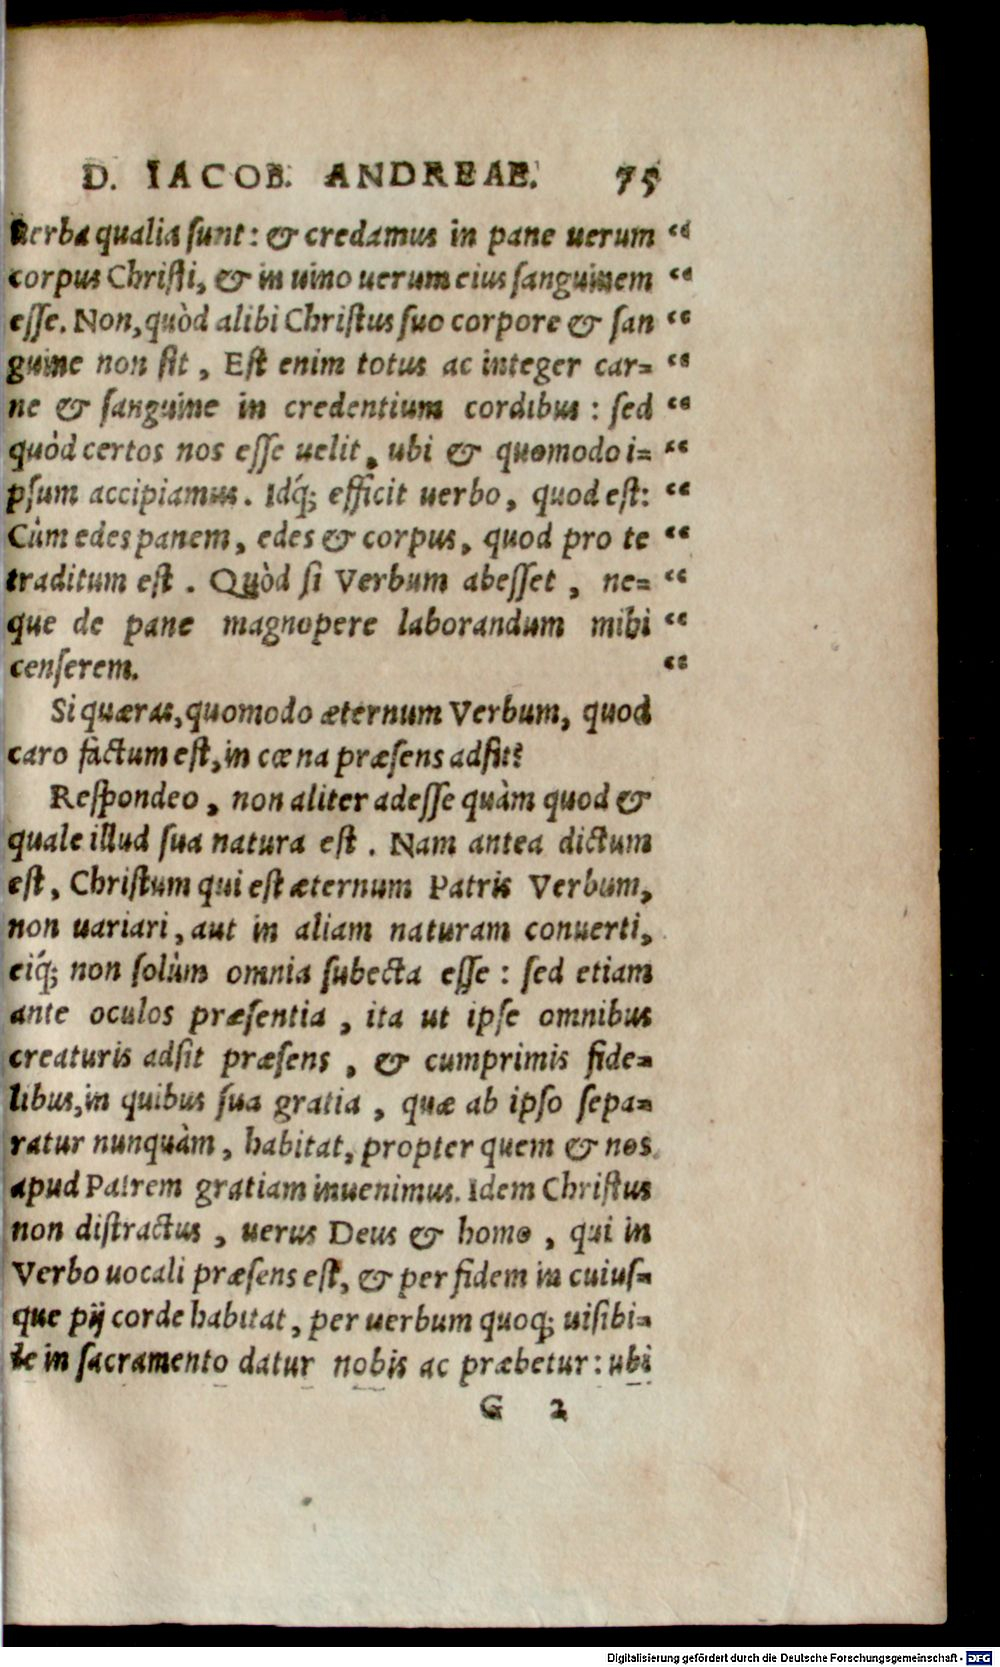 D. IACOB. ANDREAE. 75
uerba qualia sunt: & credamus in pane uerum “
corpus Christi, & in uino uerum eius sanguinem “
esse. Non, quòd alibi Christus suo corpore & san “
guine non sit, Est enim totus ac integer car= “
ne & sanguine in credentium cordibus: sed “
quòd certos nos esse uelit, ubi & quomodo i= “
psum accipiamus. Idq́; efficit uerbo, quod est: “
Cùm edes panem, edes & corpus, quod pro te “
traditum est. Quòd si Verbum abesset, ne= “
que de pane magnopere laborandum mihi “
censerem. “
Si quæras, quomodo æternum Verbum, quod
caro factum est, in cœna præsens adsit?
Respondeo, non aliter adesse quàm quod &
quale illud sua natura est. Nam antea dictum
est, Christum qui est æternum Patris Verbum,
non uariari, aut in aliam naturam conuerti,
eiq́; non solùm omnia subecta esse: sed etiam
ante oculos præsentia, ita ut ipse omnibus
creaturis adsit præsens, & cumprimis fide=
libus, in quibus sua gratia, quæ ab ipso sepa=
ratur nunquàm, habitat, propter quem & nos
apud Patrem gratiam inuenimus. Idem Christus
non distractus, uerus Deus & homo, qui in
Verbo uocali præsens est, & per fidem in cuius=
que pij corde habitat, per uerbum quoq; uisibi=
le in sacramento datur nobis ac præbetur: ubi
G 2
Digitalisierung gefördert durch die Deutsche Forschungsgemeinschaft - DFG